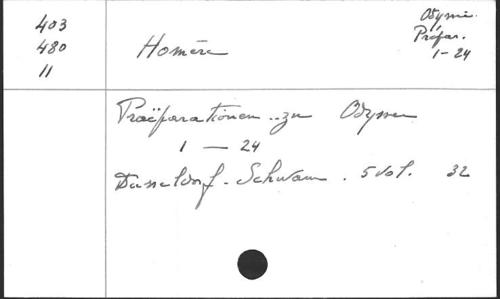 403
480
11
Homère
Odyssee.
Präpar.
1-24
Praëparationen zu Odyssee
1 — 24
Dusseldorf - Schwann. 5 vol. 32